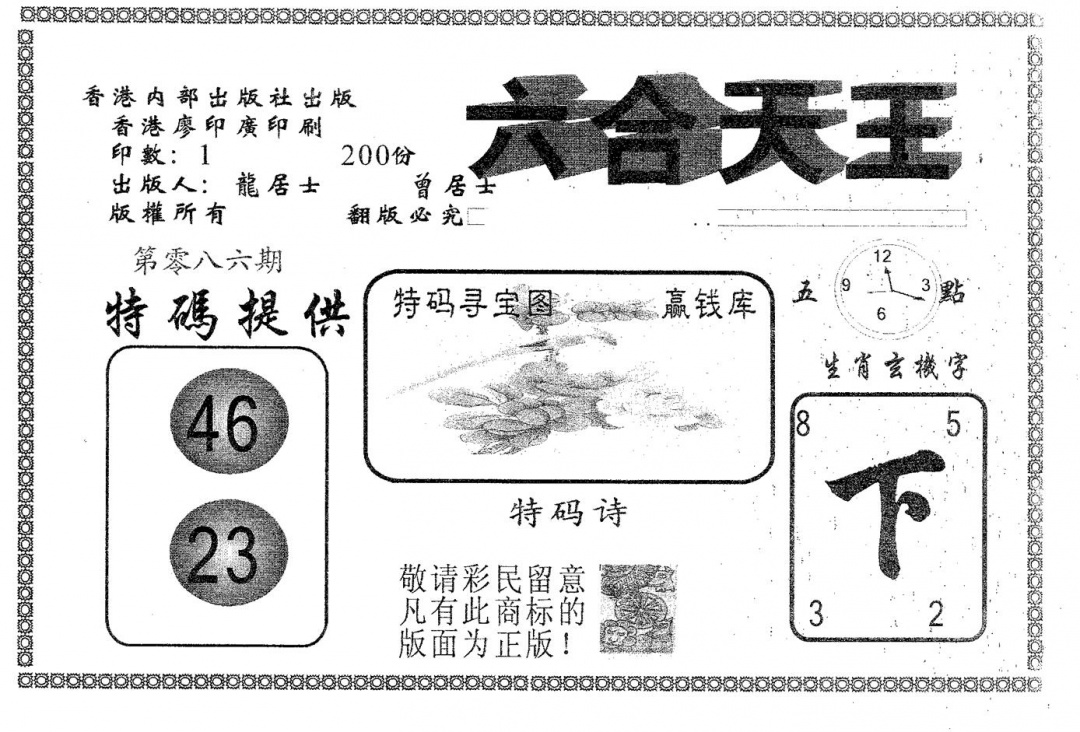 六合天王
香港内部出版社出版
香港廖印廣印刷
印數：1 200份
出版人：龍居士 曾居士
版權所有 翻版必究
第零八六期
特碼提供
46
23
特码寻宝图 赢钱库
特码诗
敬请彩民留意
凡有此商标的
版面为正版！
五 點
12
9 3
6
生肖玄機字
8 5
下
3 2